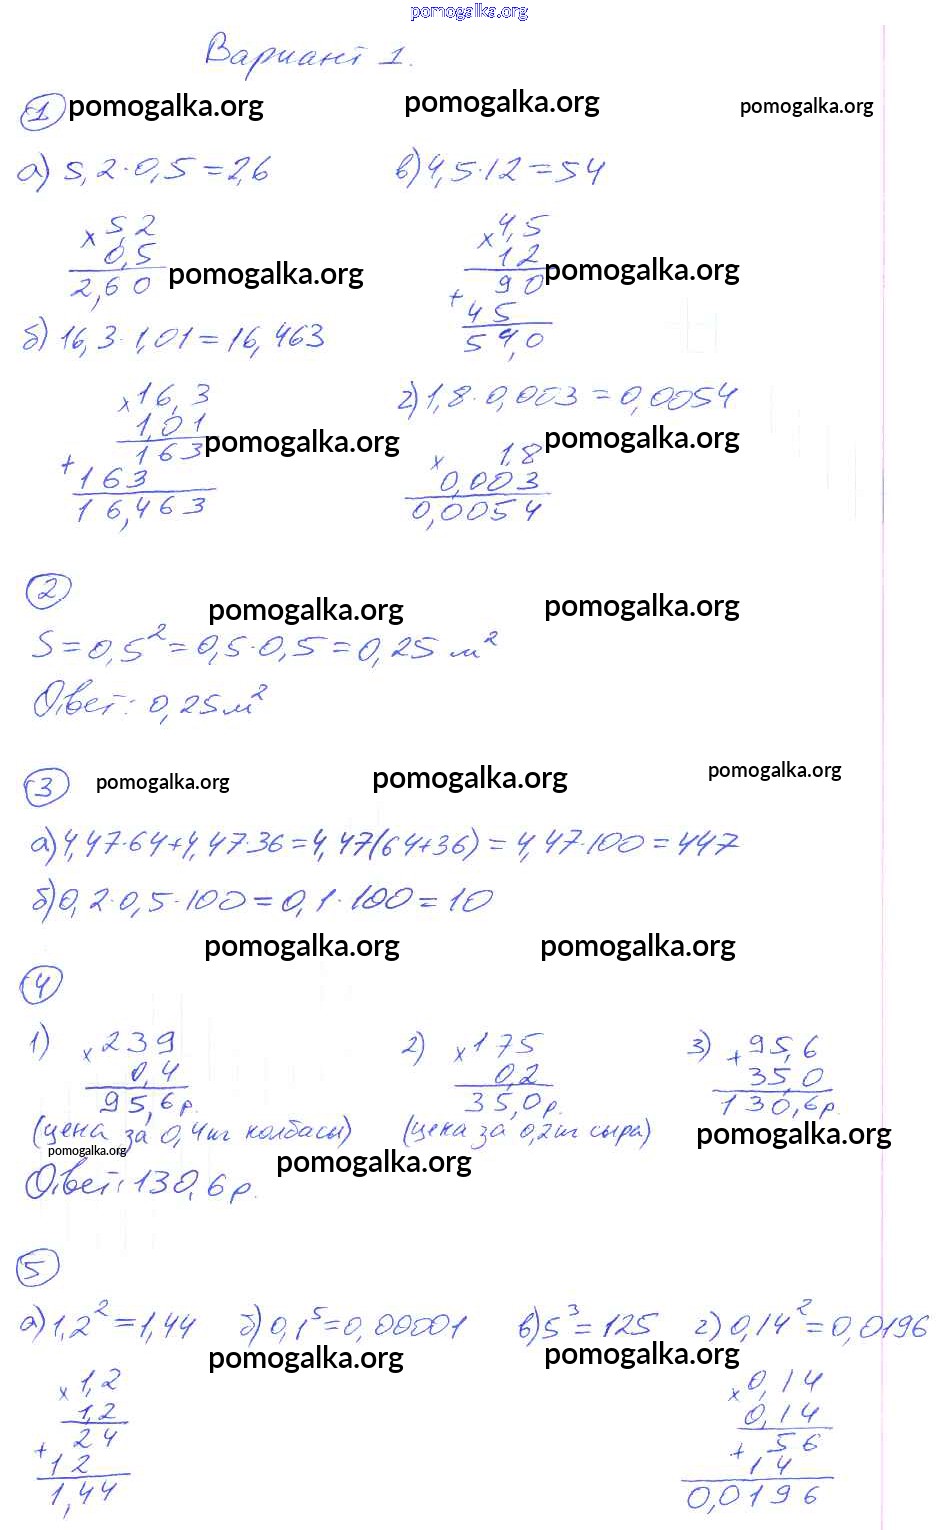 pomogalka.org
Вариант 1.
1 pomogalka.org pomogalka.org pomogalka.org
а) 5,2·0,5=2,6
× 5,2
0,5
2,60 pomogalka.org
б) 16,3·1,01=16,463
× 16,3
1,01
163 pomogalka.org
+ 163
16,463
в) 4,5·12=54
× 4,5
12
90 pomogalka.org
+ 45
54,0
г) 1,8·0,003=0,0054
pomogalka.org
× 1,8
0,003
0,0054
2
pomogalka.org pomogalka.org
S=0,5²=0,5·0,5=0,25 м²
Ответ: 0,25м²
3 pomogalka.org pomogalka.org pomogalka.org
а) 4,47·64+4,47·36=4,47(64+36)=4,47·100=447
б) 0,2·0,5·100=0,1·100=10
pomogalka.org pomogalka.org
4
1) × 239
0,4
95,6р.
(цена за 0,4кг колбасы)
2) × 175
0,2
35,0р.
(цена за 0,2кг сыра)
3) + 95,6
35,0
130,6р.
pomogalka.org
pomogalka.org pomogalka.org
Ответ: 130,6р.
5
а) 1,2²=1,44 б) 0,1⁵=0,00001 в) 5³=125 г) 0,14²=0,0196
pomogalka.org pomogalka.org
× 1,2
1,2
24
+ 12
1,44
× 0,14
0,14
+ 56
14
0,0196